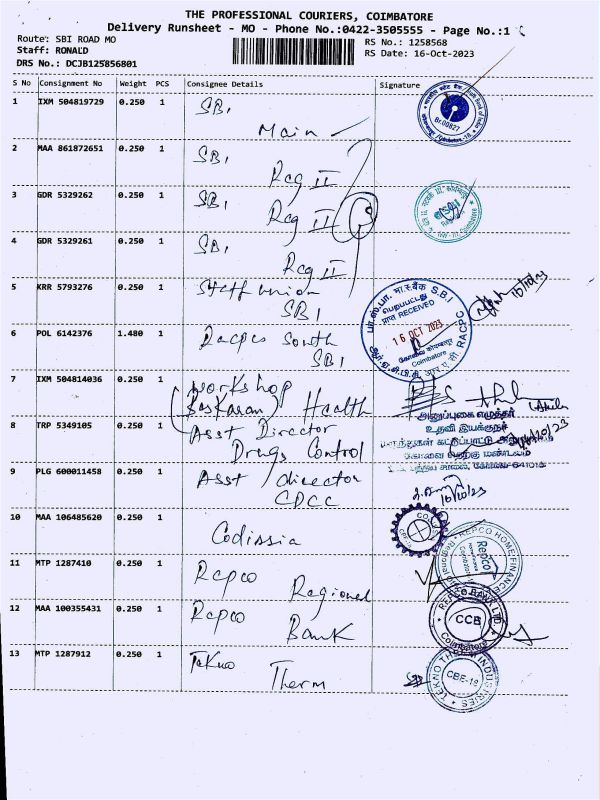 THE PROFESSIONAL COURIERS, COIMBATORE
Delivery Runsheet - MO - Phone No.:0422-3505555 - Page No.:1
Route: SBI ROAD MO
RS No.: 1258568
Staff: RONALD
RS Date: 16-Oct-2023
DRS No.: DCJB125856801
S No Consignment No Weight PCS Consignee Details Signature
1 IXM 504819729 0.250 1 SBI
Main
2 MAA 861872651 0.250 1 SBI
Reg II
3 GDR 5329262 0.250 1 SBI
Reg II
4 GDR 5329261 0.250 1 SBI
Reg II
5 KRR 5793276 0.250 1 Staff union
SBI
6 POL 6142376 1.480 1 Racpcs South
SBI
S.B.I
பெறப்பட்டது
प्राप्त RECEIVED
16 OCT 2023
Coimbatore
RACPC
7 IXM 504814036 0.250 1 Workshop
(Baskaran) Health
8 TRP 5349105 0.250 1 Asst Director
Drugs Control
அனுப்புகை எழுத்தர்
உதவி இயக்குநர்
9 PLG 600011458 0.250 1 Asst director
CDCC
16/10/23
10 MAA 106485620 0.250 1 Codissia
11 MTP 1287410 0.250 1 Repco
Regional
REPCO HOME FINANCE
Repco
Coimbatore
12 MAA 100355431 0.250 1 Repco
Bank
REPCO BANK LTD
CCB
Coimbatore
13 MTP 1287912 0.250 1 Tekno
Therm
TEKNO THERM INDUSTRIES
CBE-18